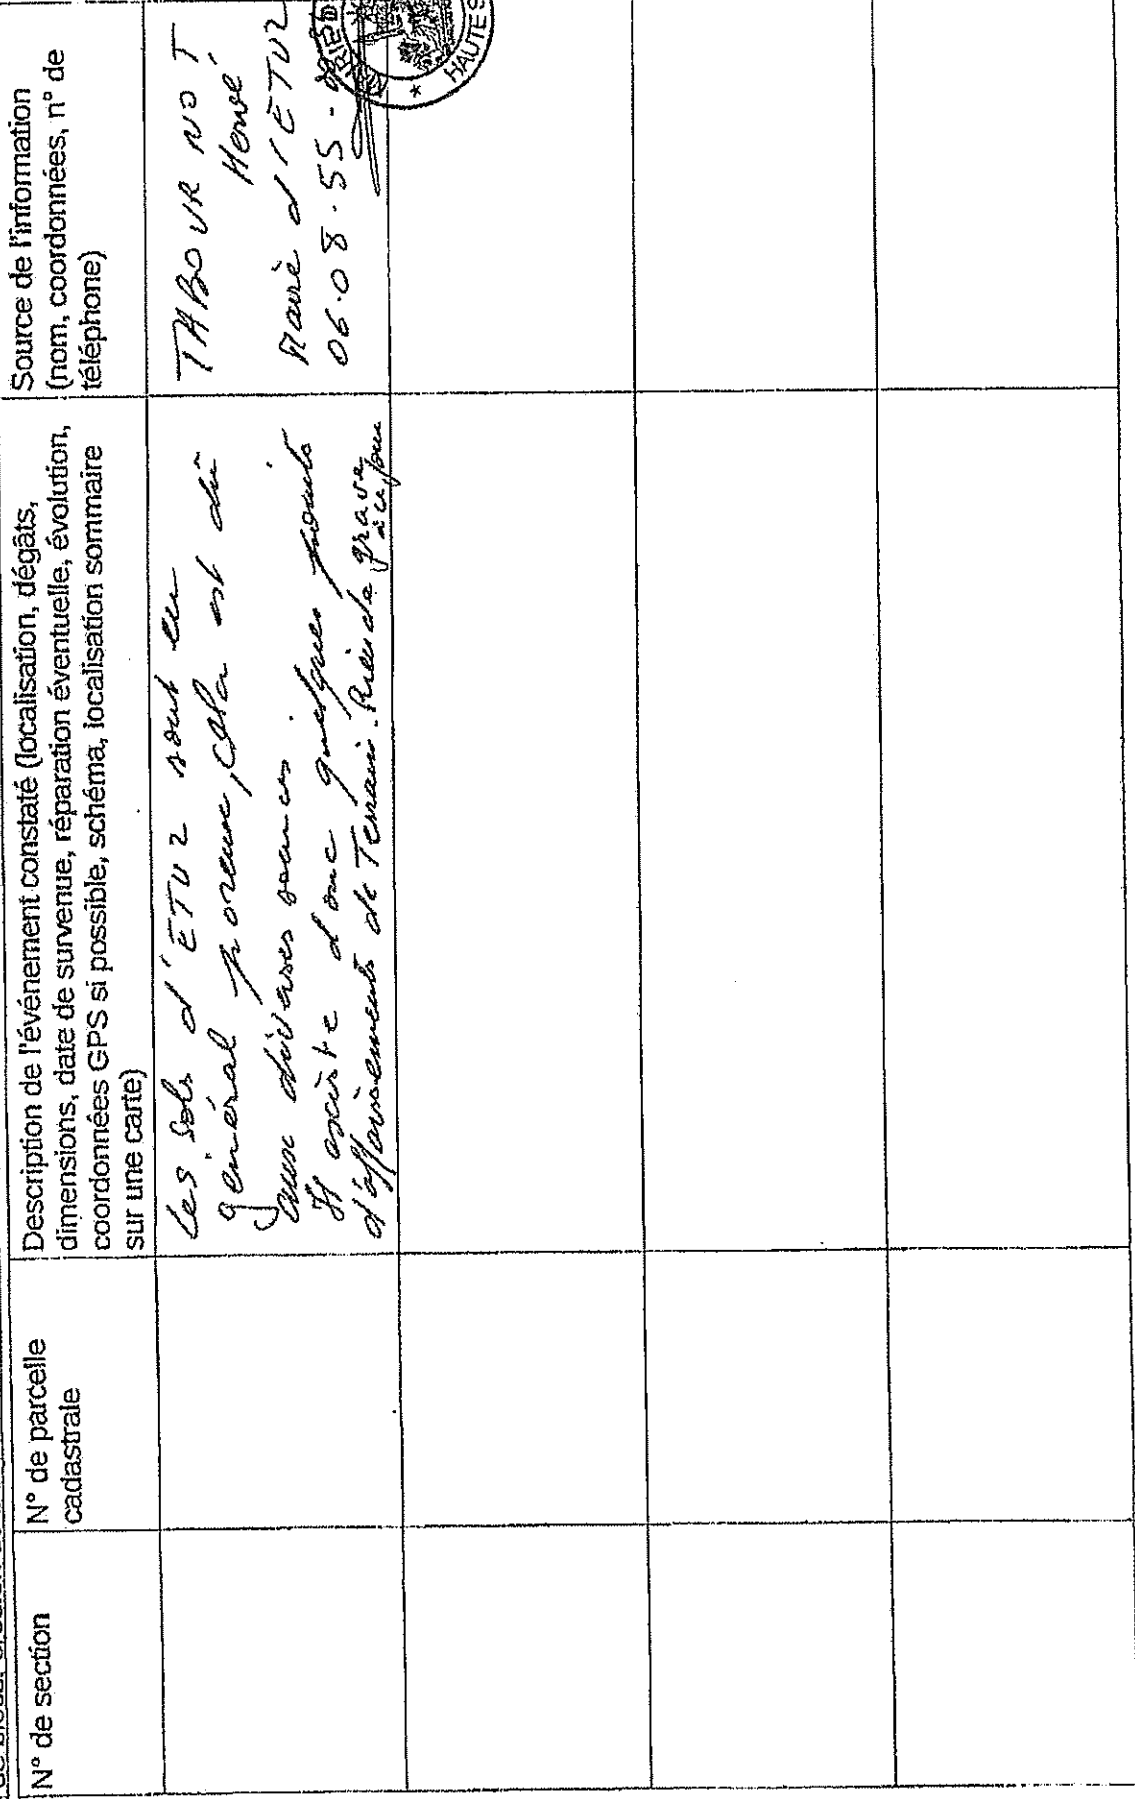 N° de section
N° de parcelle
cadastrale
Description de l'événement constaté (localisation, dégâts,
dimensions, date de survenue, réparation éventuelle, évolution,
coordonnées GPS si possible, schéma, localisation sommaire
sur une carte)
Source de l'information
(nom, coordonnées, n° de
téléphone)
les sols d'ETUZ sont en
général poreux, cela est dû
aux diverses sources.
Il existe donc quelques points
d'affaissements de Terrain. Rien de grave
à ce jour
TABOURNOT
Hervé
Maire d'ETUZ
06.08.55.
HAUTES